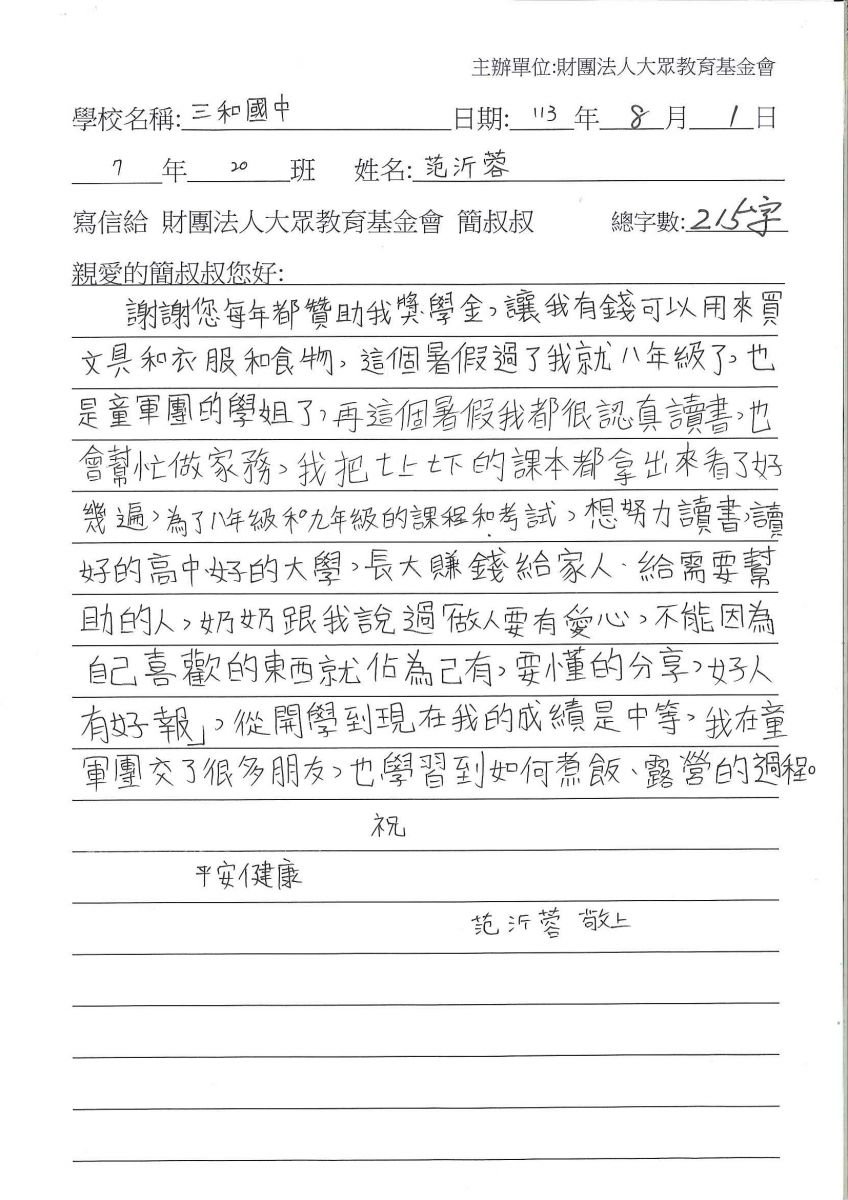 主辦單位:財團法人大眾教育基金會
學校名稱:三和國中 日期: 113 年 8 月 1 日
7 年 20 班 姓名: 范沂蓉
寫信給 財團法人大眾教育基金會 簡叔叔 總字數: 215字
親愛的簡叔叔您好:
謝謝您每年都贊助我獎學金,讓我有錢可以用來買
文具和衣服和食物,這個暑假過了我就八年級了,也
是童軍團的學姐了,再這個暑假我都很認真讀書,也
會幫忙做家務,我把七上七下的課本都拿出來看了好
幾遍,為了八年級和九年級的課程和考試,想努力讀書,讀
好的高中、好的大學,長大賺錢給家人、給需要幫
助的人,奶奶跟我說過「做人要有愛心,不能因為
自己喜歡的東西就佔為己有,要懂的分享,好人
有好報」,從開學到現在我的成績是中等,我在童
軍團交了很多朋友,也學習到如何煮飯、露營的過程。
祝
平安健康
范沂蓉 敬上